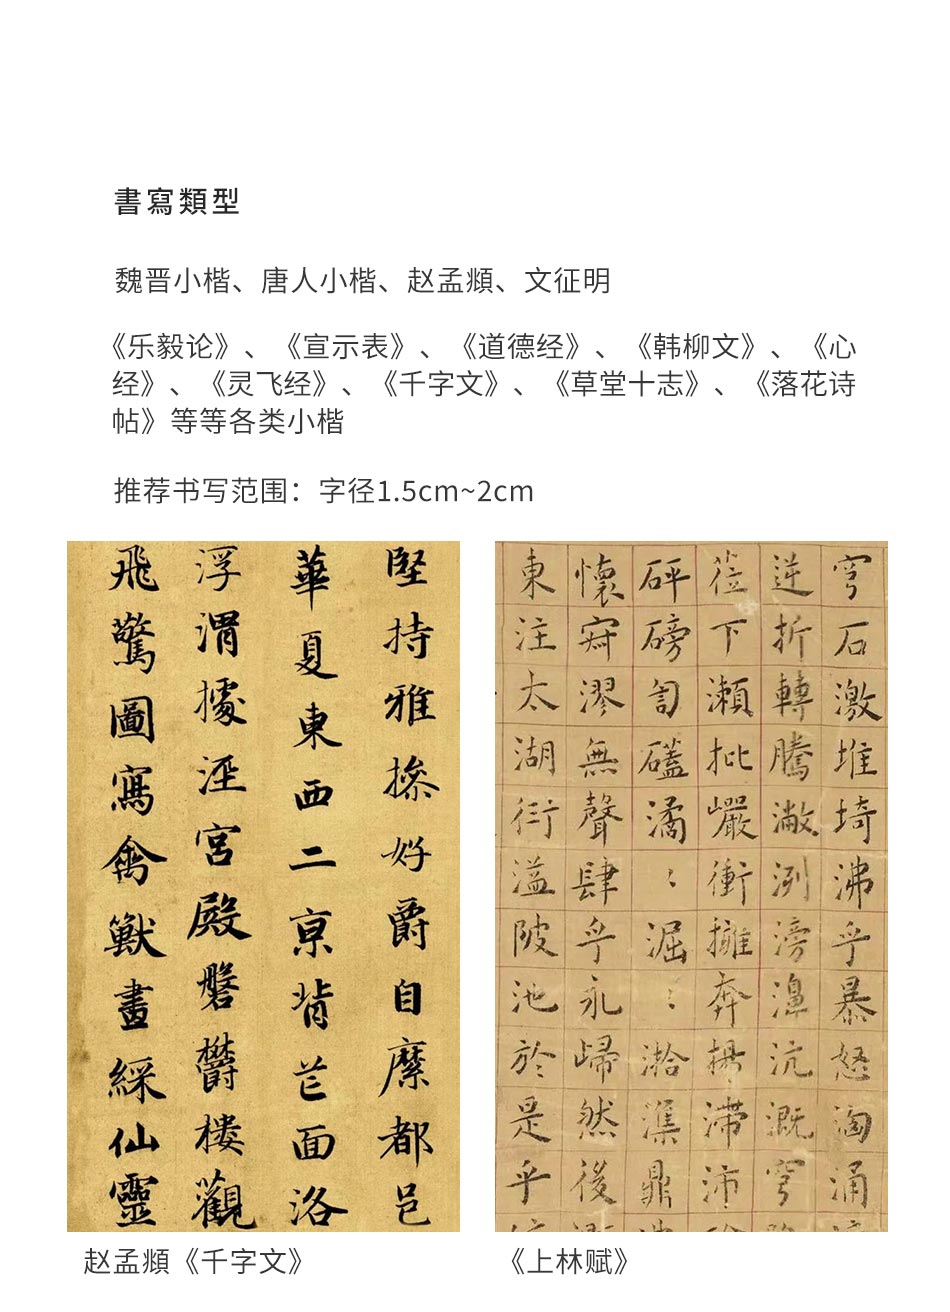 書寫類型
魏晋小楷、唐人小楷、赵孟頫、文征明
《乐毅论》、《宣示表》、《道德经》、《韩柳文》、《心
经》、《灵飞经》、《千字文》、《草堂十志》、《落花诗
帖》等等各类小楷
推荐书写范围：字径1.5cm~2cm
堅持雅操好爵自縻都邑
華夏東西二亰背芒面洛
浮渭據涇宮殿磐欝樓觀
飛驚圖寫禽獸畫綵仙靈
赵孟頫《千字文》
穹石激堆埼沸乎暴怒洶涌
逆折轉騰潎洌滂濞沆溉穹
莅下瀨批巖衝擁奔揚滯沛
砰磅訇礚潏：淈：湁潗鼎
懷寂漻無聲肆乎永歸然後
東注太湖衍溢陂池於是乎
《上林赋》